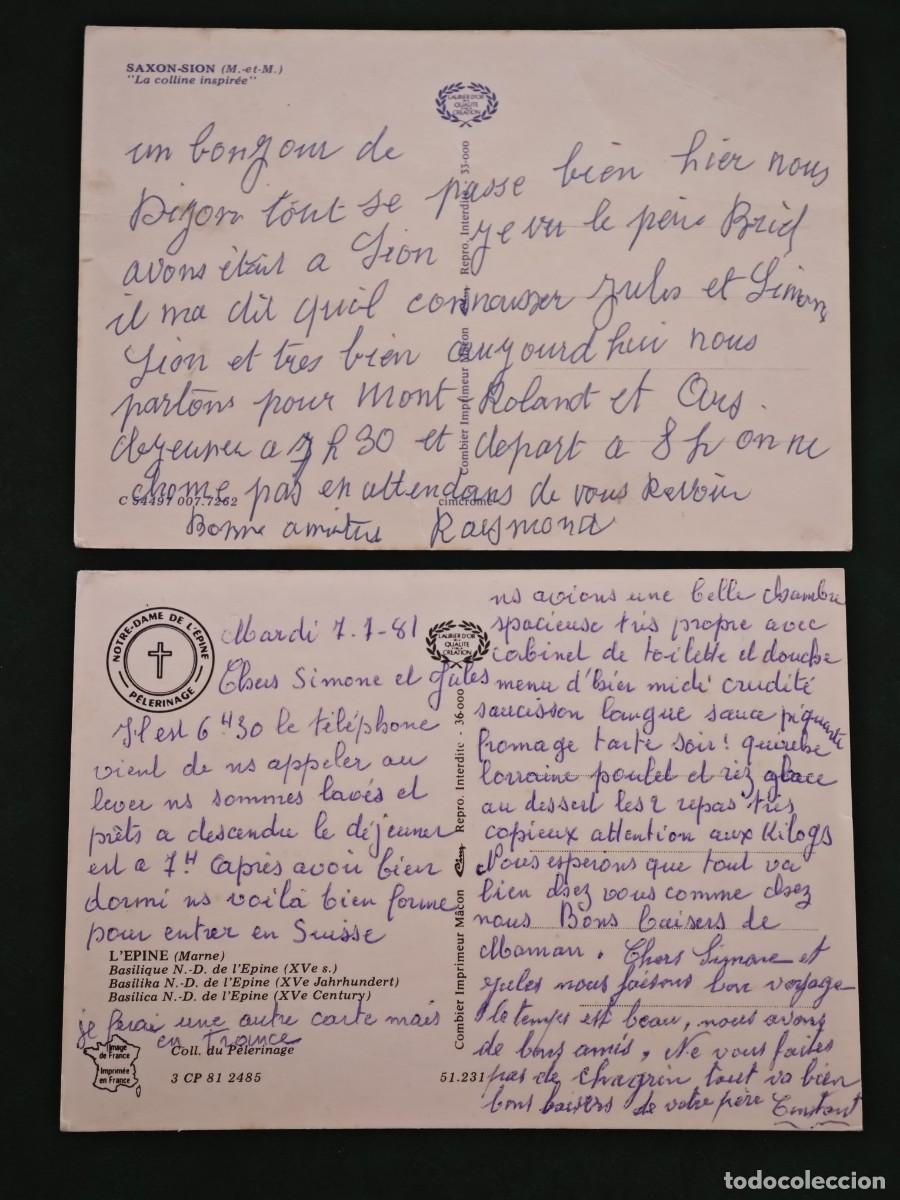 SAXON-SION (M.-et-M.)
"La colline inspirée"
LAURIER D'OR DE LA QUALITE CREATION
un bonzour de
Dizon tout se passe bien hier nous
avons était a Sion ze vu le père Brid
il ma dit quil connausser zules et Simone
Sion et tres bien auzourdhui nous
partons pour Mont Roland et Ars.
dezeuner a 7 h 30 et depart a 8 h on ne
chome pas en attendans de vous Revoir
Bonne amitus Raymond
C 54497 007.7262
cimcrome
Combier Imprimeur Mâcon Cim Repro. Interdite - 33-000
NOTRE-DAME DE L'ÉPINE
PÉLERINAGE
Mardi 7.7-81
LAURIER D'OR DE LA QUALITE CREATION
Chers Simone et Jules
Il est 6 H 30 le téléphone
vient de ns appeler au
lever ns sommes lavés et
prêts a descendu le déjeuner
est a 7 H Caprès avoir bien
dormi ns voilà bien forme
pour entrer en Suisse
L'EPINE (Marne)
Basilique N.-D. de l'Epine (XVe s.)
Basilika N.-D. de l'Epine (XVe Jahrhundert)
Basilica N.-D. de l'Epine (XVe Century)
je ferai une autre carte mais
en France
Image de France
Imprimée en France
Coll. du Pèlerinage
3 CP 81 2485
51.231
Combier Imprimeur Mâcon Cim Repro. Interdite - 36-000
ns avions une belle chambre
spacieuse très propre avec
cabinet de toilette et douche
menu d'hier midi crudité
saucisson langue sauce piquante
fromage tarte soir! quiche
lorraine poulet et riz glace
au dessert les 2 repas très
copieux attention aux Kilogs
Nous esperons que tout va
bien chez vous comme chez
nous Bons baisers de
Maman. Chers Simone et
zules nous faisons bon voyage
le temps est beau, nous avons
de bons amis, Ne vous faites
pas de chagrin tout va bien
bons baisers de votre père Constant
todocoleccion